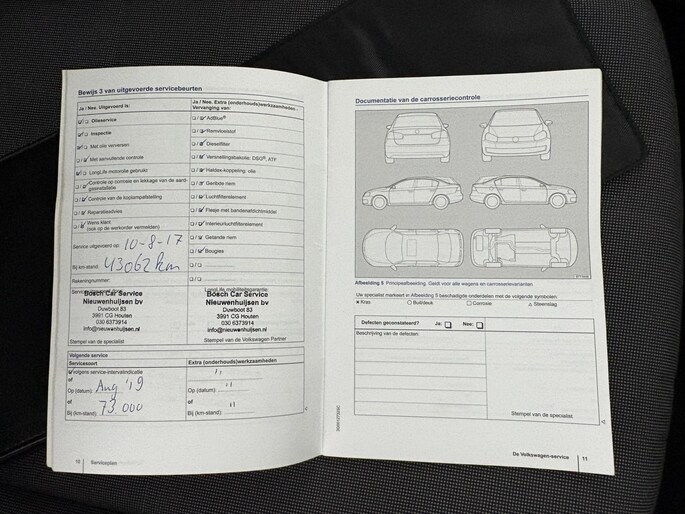 Bewijs 3 van uitgevoerde servicebeurten
Ja / Nee. Uitgevoerd is:
Olieservice
Inspectie
Met olie verversen
Met aanvullende controle
LongLife motorolie gebruikt
Controle op corrosie en lekkage van de aardgasinstallatie
Controle van de koplampafstelling
Reparatieadvies
Wens klant
(ook op de werkorder vermelden)
Service uitgevoerd op: 10-8-17
Bij km-stand: 43062 km
Rekeningnummer:
Ja / Nee. Extra (onderhouds)werkzaamheden -
Vervanging van:
AdBlue®
Remvloeistof
Dieselfilter
Versnellingsbakolie, DSG®, ATF
Haldex-koppeling: olie
Geribde riem
Luchtfilterelement
Flesje met bandenafdichtmiddel
Interieurluchtfilterelement
Getande riem
Bougies
LongLife mobiliteitsgarantie
Bosch Car Service
Nieuwenhuijsen bv
Duwboot 83
3991 CG Houten
030 6373914
info@nieuwenhuijsen.nl
Stempel van de specialist
Bosch Car Service
Nieuwenhuijsen bv
Duwboot 83
3991 CG Houten
030 6373914
info@nieuwenhuijsen.nl
Stempel van de Volkswagen Partner
Volgende service
Servicesoort
Extra (onderhouds)werkzaamheden
Volgens service-intervalindicatie
of
Op (datum): Aug '19
of
Bij (km-stand): 73.000
of
Op (datum):
of
Bij (km-stand):
10
Serviceplan
Documentatie van de carrosseriecontrole
Afbeelding 5 Principeafbeelding. Geldt voor alle wagens en carrosserievarianten
Uw specialist markeert in Afbeelding 5 beschadigde onderdelen met de volgende symbolen:
× Kras ○ Buil/deuk □ Corrosie △ Steenslag
Defecten geconstateerd? Ja: Nee:
Beschrijving van de defecten:
Stempel van de specialist
De Volkswagen-service
11